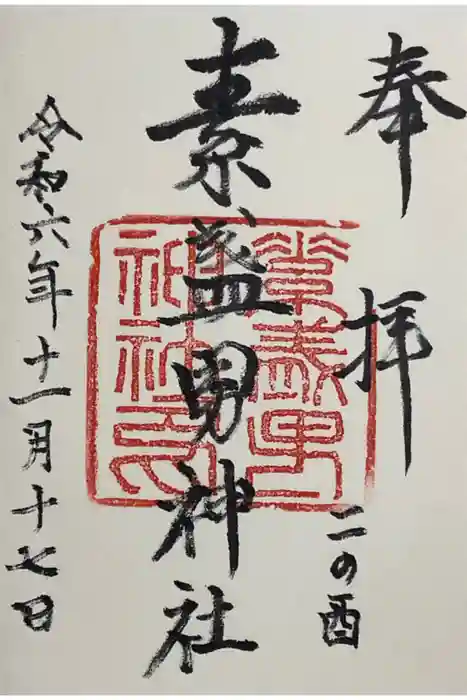 奉拝
二の酉
素盞男神社
令和六年十一月十七日